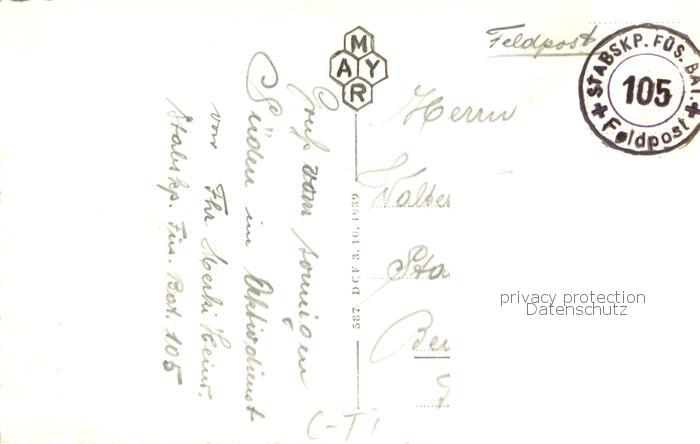 Feldpost
STABSKP. FÜS. BAT.
105
Feldpost
MAYR
Herrn
Gruss vom sonnigen
Süden im Aktivdienst
von Ihr Merki Heinr.
Stabskp. Füs. Bat. 105
587 DCF 3.10.1939
privacy protection
Datenschutz